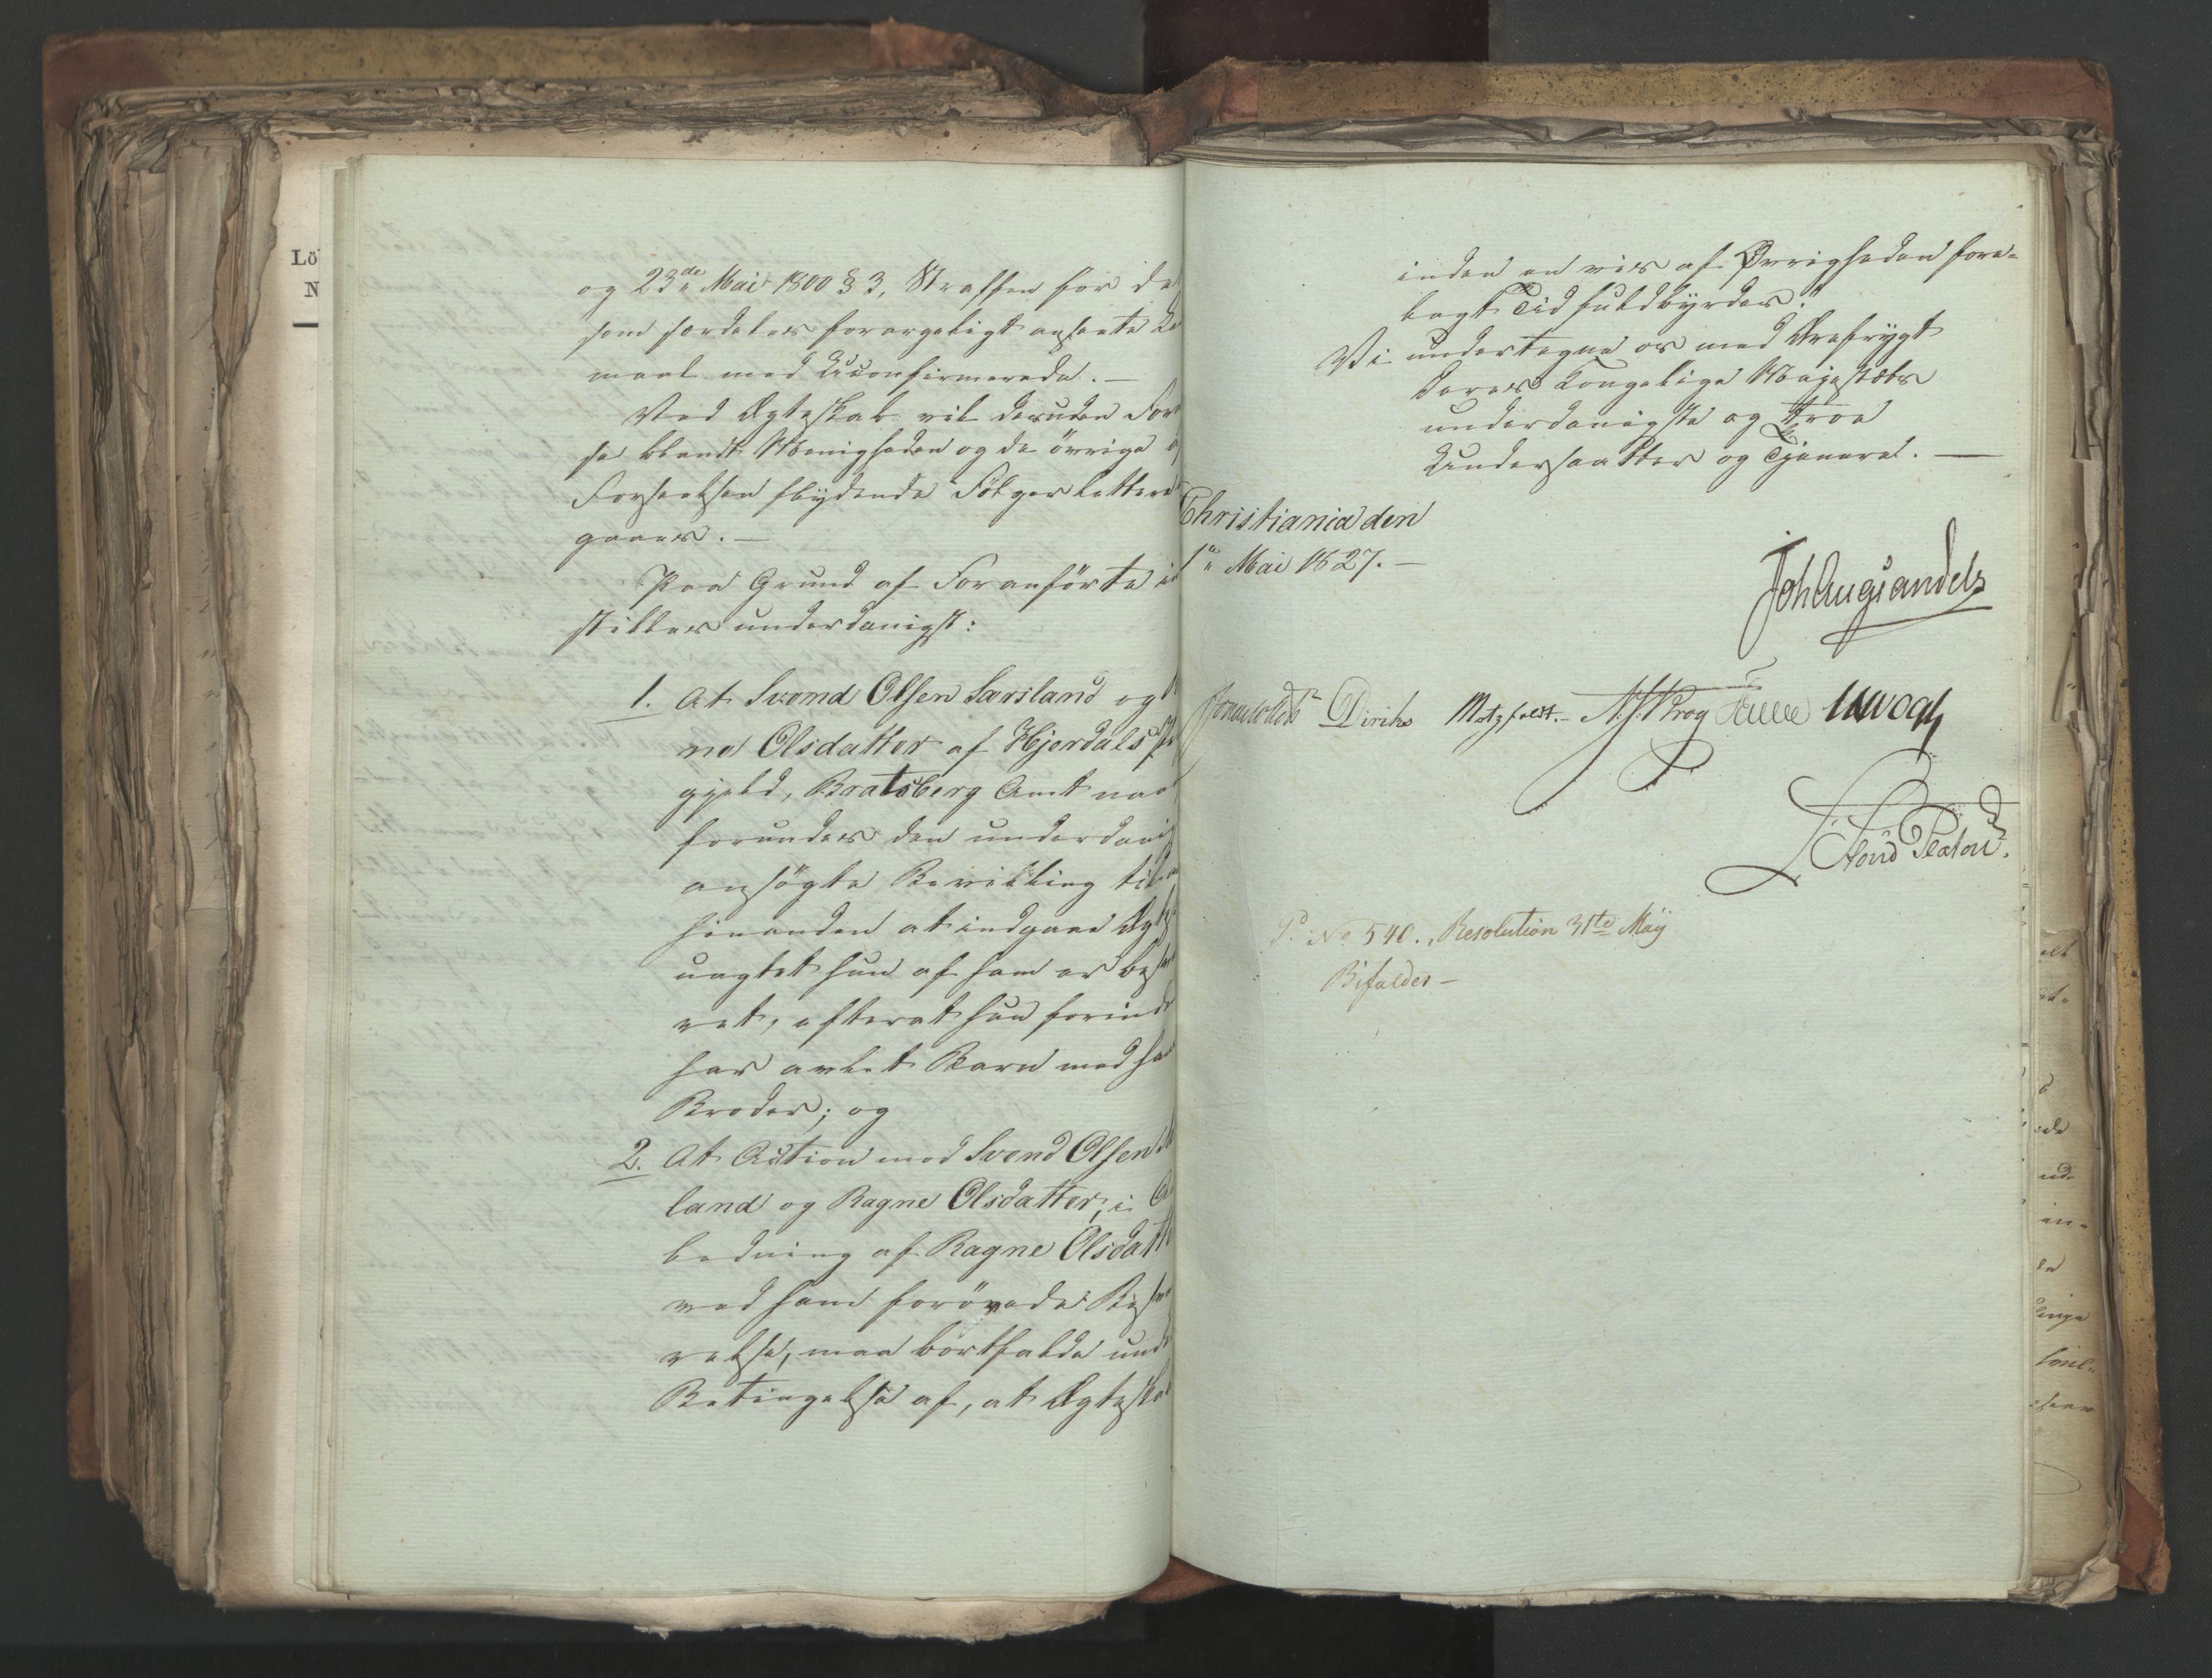 Lö
N
og 23de Mai 1800 § 3, Straffen for de
som særdeles forargeligt ansete Le
maal med Uconfirmerede. —
Ved Ægteskab vil desuden For
se blandt Menigheden og de övrige a
Forseelsen flydende Fölger lettere
gaaes. —
Paa Grund af Foranförte in
stilles underdanigst:
1. At Svend Olsen Særsland og
ne Olsdatter af Hjerdals Præ
gjeld, Bratsberg Amt naa
forundes den underdanig
ansögte Bevilling til m
hinanden at indgaae Ægtes
uagtet hun af ham er besv
ret, efterat hun forinde
har avlet Barn med ha
Broder; og
2. At Action mod Svend Olsen Sæ
land og Ragne Olsdatter, i A
ledning af Ragne Olsdatte
ved ham forövede Besva
relse, maa bortfalde unde
Betingelse af, at Ægteskab
inden en vis af Øvrigheden fore-
lagt Tid fuldbyrdes."
Vi undertegne os med Ærefrygt
Deres Kongelige Majestæts
underdanigste og troe
Undersaatter og Tjenere. —
Christiania den
1e Mai 1827. —
Joh Aug Sandels
Sommerhielm Diriks Motzfeldt. — A. J. Krog Hegermann Vogt
L. Stoud Platou.
Pd. No 540., Resolution 31te May
Bifaldes —